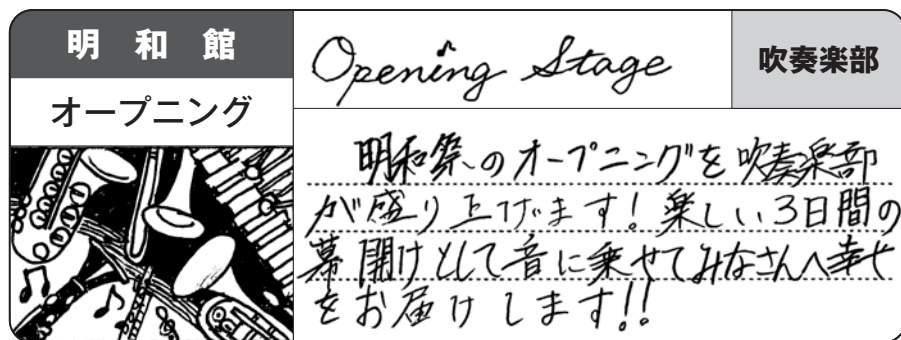 明和館
オープニング
Opening Stage
吹奏楽部
明和祭のオープニングを吹奏楽部
が盛り上げます！楽しい3日間の
幕開けとして音に乗せてみなさんへ幸せ
をお届けします!!